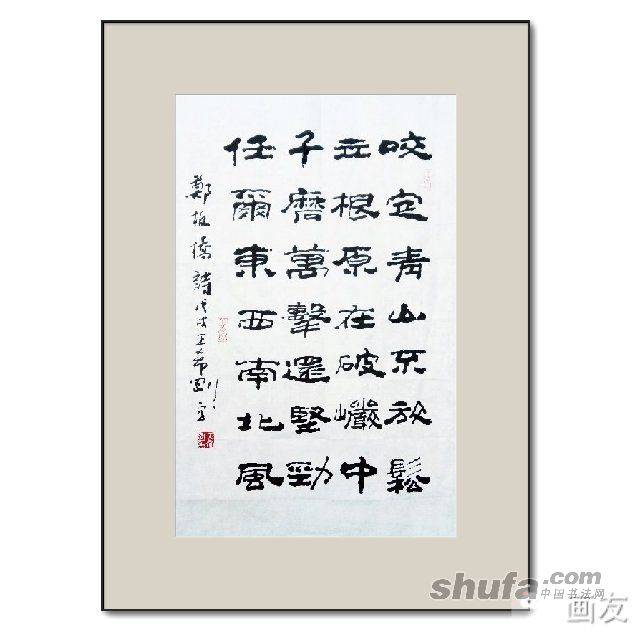 咬定青山不放鬆
立根原在破巖中
千磨萬擊還堅勁
任爾東西南北風
鄭板橋詩 戊戌
shufa.com
中国书法网
画友